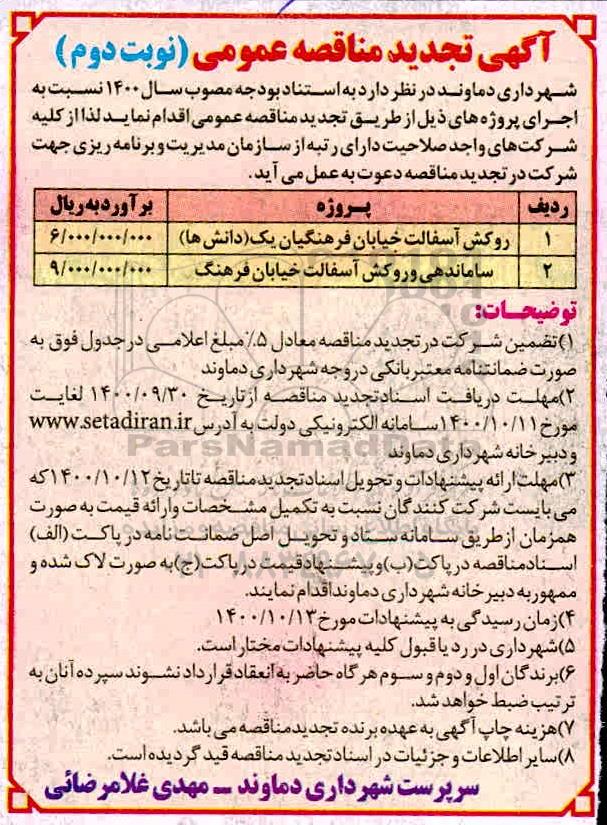 آگهی تجدید مناقصه عمومی (نوبت دوم)
شهرداری دماوند در نظر دارد به استناد بودجه مصوب سال ۱۴۰۰ نسبت به
اجرای پروژه های ذیل از طریق تجدید مناقصه عمومی اقدام نماید لذا از کلیه
شرکت های واجد صلاحیت دارای رتبه از سازمان مدیریت و برنامه ریزی جهت
شرکت در تجدید مناقصه دعوت به عمل می آید.
ردیف پروژه برآورد به ریال
۱ روکش آسفالت خیابان فرهنگیان یک (دانش ها) ۶/۰۰۰/۰۰۰/۰۰۰
۲ ساماندهی و روکش آسفالت خیابان فرهنگ ۹/۰۰۰/۰۰۰/۰۰۰
توضیحات:
۱) تضمین شرکت در تجدید مناقصه معادل ۵٪ مبلغ اعلامی در جدول فوق به
صورت ضمانتنامه معتبر بانکی در وجه شهرداری دماوند
۲) مهلت دریافت اسناد تجدید مناقصه از تاریخ ۱۴۰۰/۰۹/۳۰ لغایت
مورخ ۱۴۰۰/۱۰/۱۱ سامانه الکترونیکی دولت به آدرس www.setadiran.ir
و دبیرخانه شهرداری دماوند
ParsNamadData
۳) مهلت ارائه پیشنهادات و تحویل اسناد تجدید مناقصه تا تاریخ ۱۴۰۰/۱۰/۱۲ که
می بایست شرکت کنندگان نسبت به تکمیل مشخصات و ارائه قیمت به صورت
همزمان از طریق سامانه ستاد و تحویل اصل ضمانت نامه در پاکت (الف)
اسناد مناقصه در پاکت (ب) و پیشنهاد قیمت در پاکت (ج) به صورت لاک شده و
ممهور به دبیرخانه شهرداری دماوند اقدام نمایند.
۴) زمان رسیدگی به پیشنهادات مورخ ۱۴۰۰/۱۰/۱۳
۵) شهرداری در رد یا قبول کلیه پیشنهادات مختار است.
۶) برندگان اول و دوم و سوم هرگاه حاضر به انعقاد قرارداد نشوند سپرده آنان به
ترتیب ضبط خواهد شد.
۷) هزینه چاپ آگهی به عهده برنده تجدید مناقصه می باشد.
۸) سایر اطلاعات و جزئیات در اسناد تجدید مناقصه قید گردیده است.
سرپرست شهرداری دماوند ــ مهدی غلامرضائی